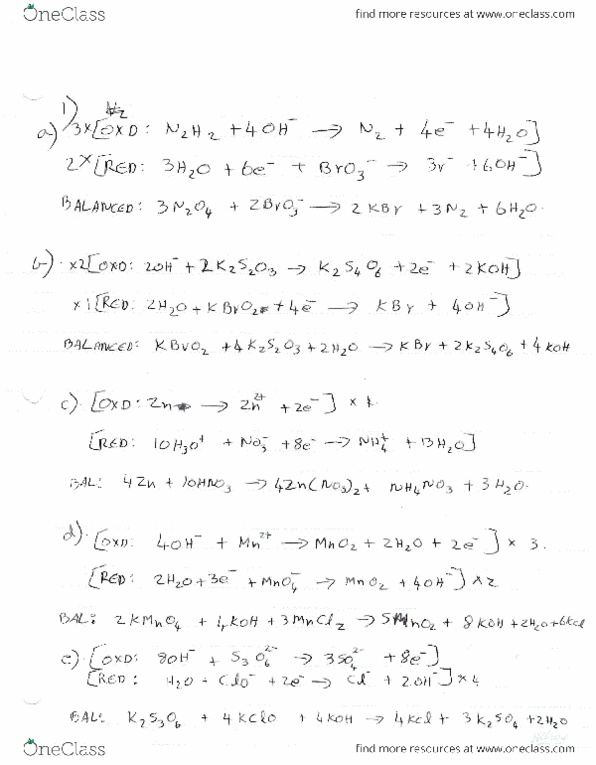 OneClass
find more resources at www.oneclass.com
1) H2
a) 3×[OXD: N2H2 + 4OH⁻ → N2 + 4e⁻ + 4H2O]
2×[RED: 3H2O + 6e⁻ + BrO3⁻ → Br⁻ + 6OH⁻]
BALANCED: 3N2O4 + 2BrO3⁻ → 2KBr + 3N2 + 6H2O.
b) ×2[OXD: 2OH⁻ + 2K2S2O3 → K2S4O6 + 2e⁻ + 2KOH]
×1[RED: 2H2O + KBrO2 + 4e⁻ → KBr + 4OH⁻]
BALANCED: KBrO2 + 4K2S2O3 + 2H2O → KBr + 2K2S4O6 + 4KOH
c) [OXD: Zn → Zn²⁺ + 2e⁻] × 4
[RED: 10H3O⁺ + NO3⁻ + 8e⁻ → NH4⁺ + 13H2O]
BAL: 4Zn + 10HNO3 → 4Zn(NO3)2 + NH4NO3 + 3H2O.
d) [OXD: 4OH⁻ + Mn²⁺ → MnO2 + 2H2O + 2e⁻] × 3.
[RED: 2H2O + 3e⁻ + MnO4⁻ → MnO2 + 4OH⁻] × 2
BAL: 2KMnO4 + 4KOH + 3MnCl2 → 5MnO2 + 8KOH + 2H2O + 6KCl
e) [OXD: 8OH⁻ + S3O6²⁻ → 3SO4²⁻ + 8e⁻]
[RED: H2O + ClO⁻ + 2e⁻ → Cl⁻ + 2OH⁻] × 4
BAL: K2S3O6 + 4KClO + 4KOH → 4KCl + 3K2SO4 + 2H2O
OneClass
find more resources at www.oneclass.com